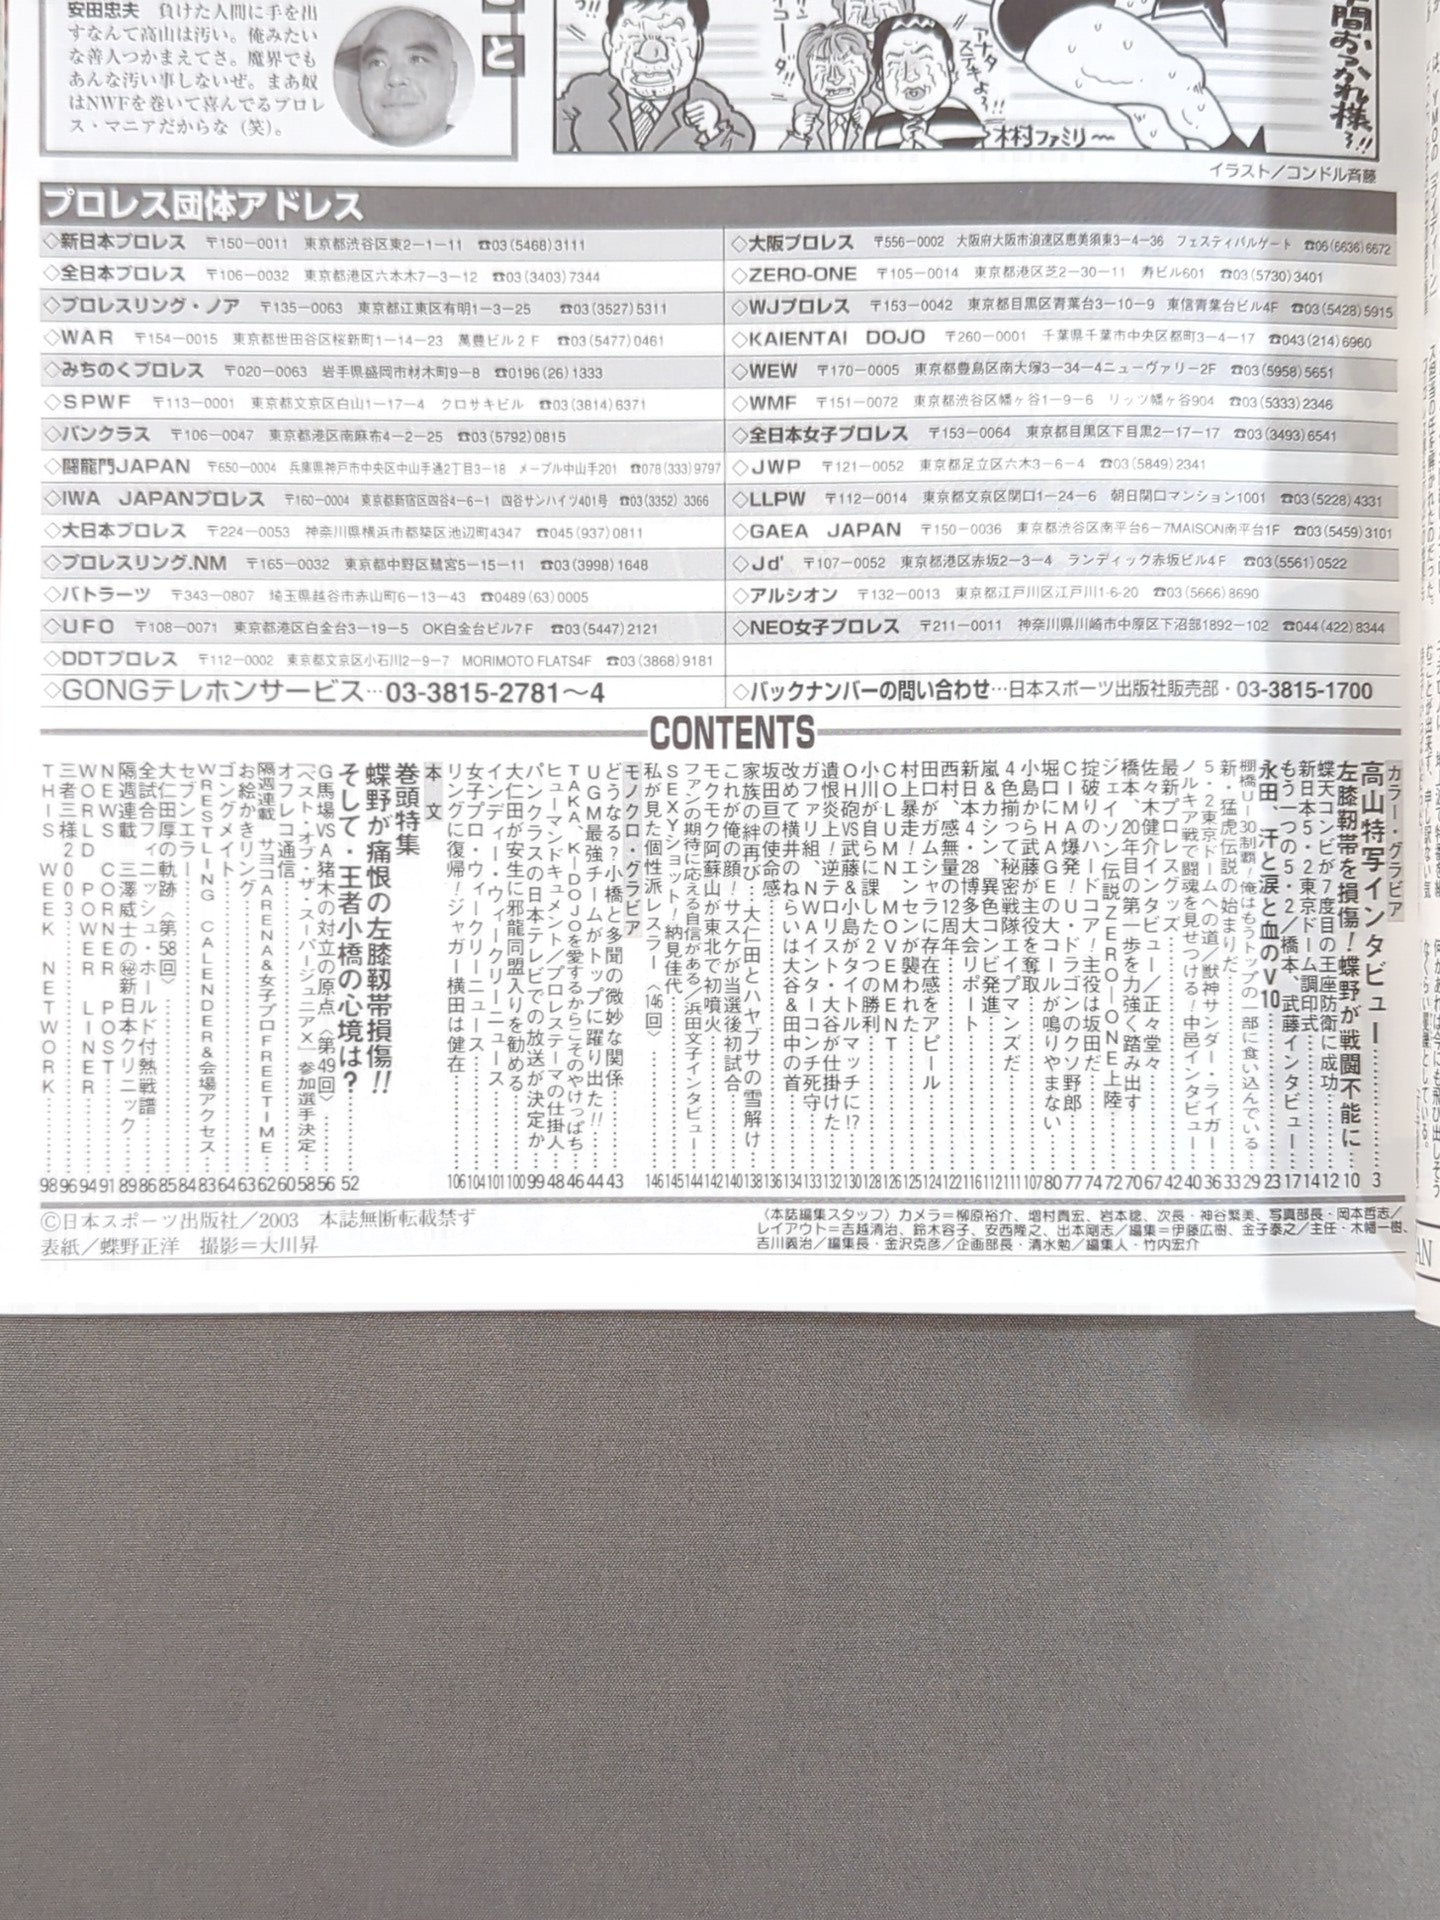 安田忠夫　負けた人間に手を出
すなんて高山は汚い。俺みたい
な善人つかまえてさ。魔界でも
あんな汚い事しないぜ。まあ奴
はNWFを巻いて喜んでるプロレ
ス・マニアだからな（笑）。
と
アナタステキよォ!!
木村ファミリ〜
イラスト／コンドル斉藤
プロレス団体アドレス
◇新日本プロレス　〒150−0011　東京都渋谷区東2−1−11　☎03(5468)3111
◇全日本プロレス　〒106−0032　東京都港区六本木7−3−12　☎03(3403)7344
◇プロレスリング・ノア　〒135−0063　東京都江東区有明1−3−25　☎03(3527)5311
◇WAR　〒154−0015　東京都世田谷区桜新町1−14−23　萬豊ビル２Ｆ　☎03(5477)0461
◇みちのくプロレス　〒020−0063　岩手県盛岡市材木町9−8　☎0196(26)1333
◇SPWF　〒113−0001　東京都文京区白山1−17−4　クロサキビル　☎03(3814)6371
◇パンクラス　〒106−0047　東京都港区南麻布4−2−25　☎03(5792)0815
◇闘龍門JAPAN　〒650−0004　兵庫県神戸市中央区中山手通2丁目3−18　メープル中山手201　☎078(333)9797
◇IWA　JAPANプロレス　〒160−0004　東京都新宿区四谷4−6−1　四谷サンハイツ401号　☎03(3352)3366
◇大日本プロレス　〒224−0053　神奈川県横浜市都築区池辺町4347　☎045(937)0811
◇プロレスリング.NM　〒165−0032　東京都中野区鷺宮5−15−11　☎03(3998)1648
◇バトラーツ　〒343−0807　埼玉県越谷市赤山町6−13−43　☎0489(63)0005
◇UFO　〒108−0071　東京都港区白金台3−19−5　OK白金台ビル7Ｆ　☎03(5447)2121
◇DDTプロレス　〒112−0002　東京都文京区小石川2−9−7　MORIMOTO FLATS4F　☎03(3868)9181
◇GONGテレホンサービス…03-3815-2781〜4
◇大阪プロレス　〒556−0002　大阪府大阪市浪速区恵美須東3−4−36　フェスティバルゲート　☎06(6636)6672
◇ZERO-ONE　〒105−0014　東京都港区芝2−30−11　寿ビル601　☎03(5730)3401
◇WJプロレス　〒153−0042　東京都目黒区青葉台3−10−9　東信青葉台ビル4F　☎03(5428)5915
◇KAIENTAI　DOJO　〒260−0001　千葉県千葉市中央区都町3−4−17　☎043(214)6960
◇WEW　〒170−0005　東京都豊島区南大塚3−34−4ニューヴァリー2F　☎03(5958)5651
◇WMF　〒151−0072　東京都渋谷区幡ヶ谷1−9−6　リッツ幡ヶ谷904　☎03(5333)2346
◇全日本女子プロレス　〒153−0064　東京都目黒区下目黒2−17−17　☎03(3493)6541
◇JWP　〒121−0052　東京都足立区六木3−6−4　☎03(5849)2341
◇LLPW　〒112−0014　東京都文京区関口1−24−6　朝日関口マンション1001　☎03(5228)4331
◇GAEA　JAPAN　〒150−0036　東京都渋谷区南平台6−7MAISON南平台1F　☎03(5459)3101
◇Jd'　〒107−0052　東京都港区赤坂2−3−4　ランディック赤坂ビル4Ｆ　☎03(5561)0522
◇アルシオン　〒132−0013　東京都江戸川区江戸川1-6-20　☎03(5666)8690
◇NEO女子プロレス　〒211−0011　神奈川県川崎市中原区下沼部1892−102　☎044(422)8344
◇バックナンバーの問い合わせ…日本スポーツ出版社販売部・03-3815-1700
CONTENTS
カラー・グラビア
高山特写インタビュー……3
左膝靱帯を損傷！蝶野が戦闘不能に…10
蝶天コンビが7度目の王座防衛に成功…12
新日本5・2東京ドーム調印式…14
もう一つの5・2／橋本、武藤インタビュー…17
永田、汗と涙と血のV10…23
棚橋U－30制覇！俺はもうトップの一部に食い込んでいる…29
新・猛虎伝説の始まりだ…33
5・2東京ドームへの道／獣神サンダー・ライガー…36
ノルキア戦で闘魂を見せつける！中邑インタビュー…40
最新プロレスグッズ…42
佐々木健介インタビュー／正々堂々…67
橋本、20年目の第一歩を力強く踏み出す…70
ジェイソン伝説ZERO－ONE上陸…72
掟破りのハードコア！主役は坂田だ…74
CIMA爆発！U・ドラゴンのクソ野郎…77
堀口にHAGEの大コールが鳴りやまない…80
小島から武藤が主役を奪取…107
4色揃って秘密戦隊エイプマンズだ…111
嵐＆カシン、異色コンビ発進…112
新日本4・28博多大会リポート…116
西村、感無量の12周年…122
田口がガムシャラに存在感をアピール…124
村上暴走！エンセンが襲われた…125
COLUMN MOVEMENT…126
小川が自らに課した2つの勝利…128
OH砲VS武藤＆小島がタイトルマッチに!?…130
遺恨炎上！逆テロリスト・大谷が仕掛けた…131
ガファリ組、NWAインターコンチ死守…132
改めて横井のねらいは大谷＆田中の首…134
坂田亘の使命感…136
家族の絆再び…大仁田とハヤブサの雪解け…138
これが俺の顔！サスケが当選後初試合…140
モクモク阿蘇山が東北で初噴火…142
ファンの期待に応える自信がある／浜田文子インタビュー…144
SEXYショット！納見佳代…145
私が見た個性派レスラー〈146回〉…146
モノクロ・グラビア
どうなる？小橋と多聞の微妙な関係…43
UGM最強チームがトップに躍り出た!!…44
TAKA、K－DOJOを愛するからこそのやけっぱち…46
ヒューマンドキュメント／プロレステーマの仕掛人…48
パンクラスの日本テレビでの放送が決定か…99
大仁田が安生に邪龍同盟入りを勧める…100
インディー・ウィークリーニュース…101
女子プロ・ウィークリーニュース…104
リングに復帰！ジャガー横田は健在…106
本文
巻頭特集
蝶野が痛恨の左膝靱帯損傷!!
そして・王者小橋の心境は？…52
G馬場VSA猪木の対立の原点〈第49回〉…56
「ベスト・オブ・ザ・スーパージュニアX」参加選手決定…58
オフレコ通信…60
隔週連載　サヨコARENA＆女子プロFREETIME…62
お絵かきリング…63
ゴングメイト…64
WRESTLING CALENDER＆会場アクセス…83
セブンエラー…84
大仁田厚の軌跡〈第58回〉…85
全試合フィニッシュ・ホールド付熱戦譜…86
隔週連載　三澤威士の㊙新日本クリニック…89
NEWS CORNER POST…91
WORLD POWER LINER…94
三者三様2003…96
THIS WEEK NETWORK…98
©日本スポーツ出版社／2003　本誌無断転載禁ず
表紙／蝶野正洋　撮影＝大川昇
〈本誌編集スタッフ〉カメラ＝柳原裕介、増村貴宏、岩本稔、次長・神谷繁美、写真部長・岡本哲志／
レイアウト＝吉越清治、鈴木容子、安西隆之、出本剛志／編集＝伊藤広樹、金子泰之／主任・木幡一樹、
吉川義治／編集長・金沢克彦／企画部長・清水勉／編集人・竹内宏介